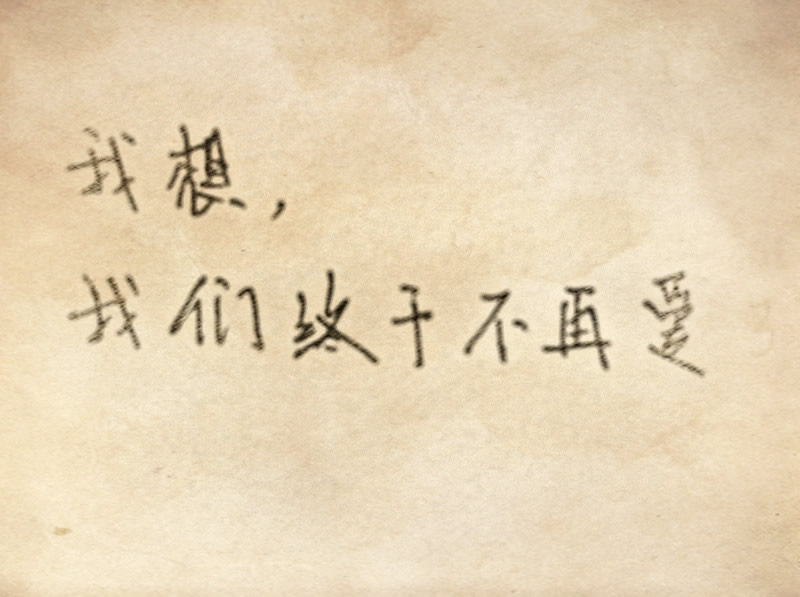 我想，
我们终于不再受